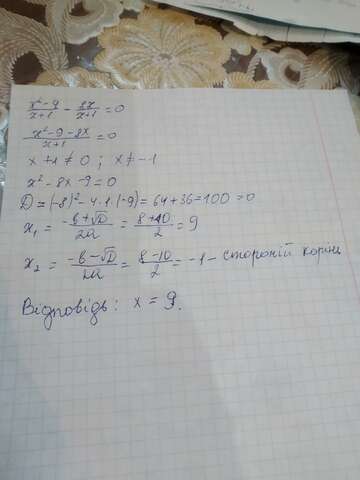 x²-9/x+1 - 8x/x+1 = 0
x²-9-8x/x+1 = 0
x+1≠0; x≠-1
x²-8x-9=0
D=(-8)²-4·1·(-9)=64+36=100>0
x₁ = -b+√D/2a = 8+10/2 = 9
x₂ = -b-√D/2a = 8-10/2 = -1 - стороній корінь
Відповідь: x = 9.